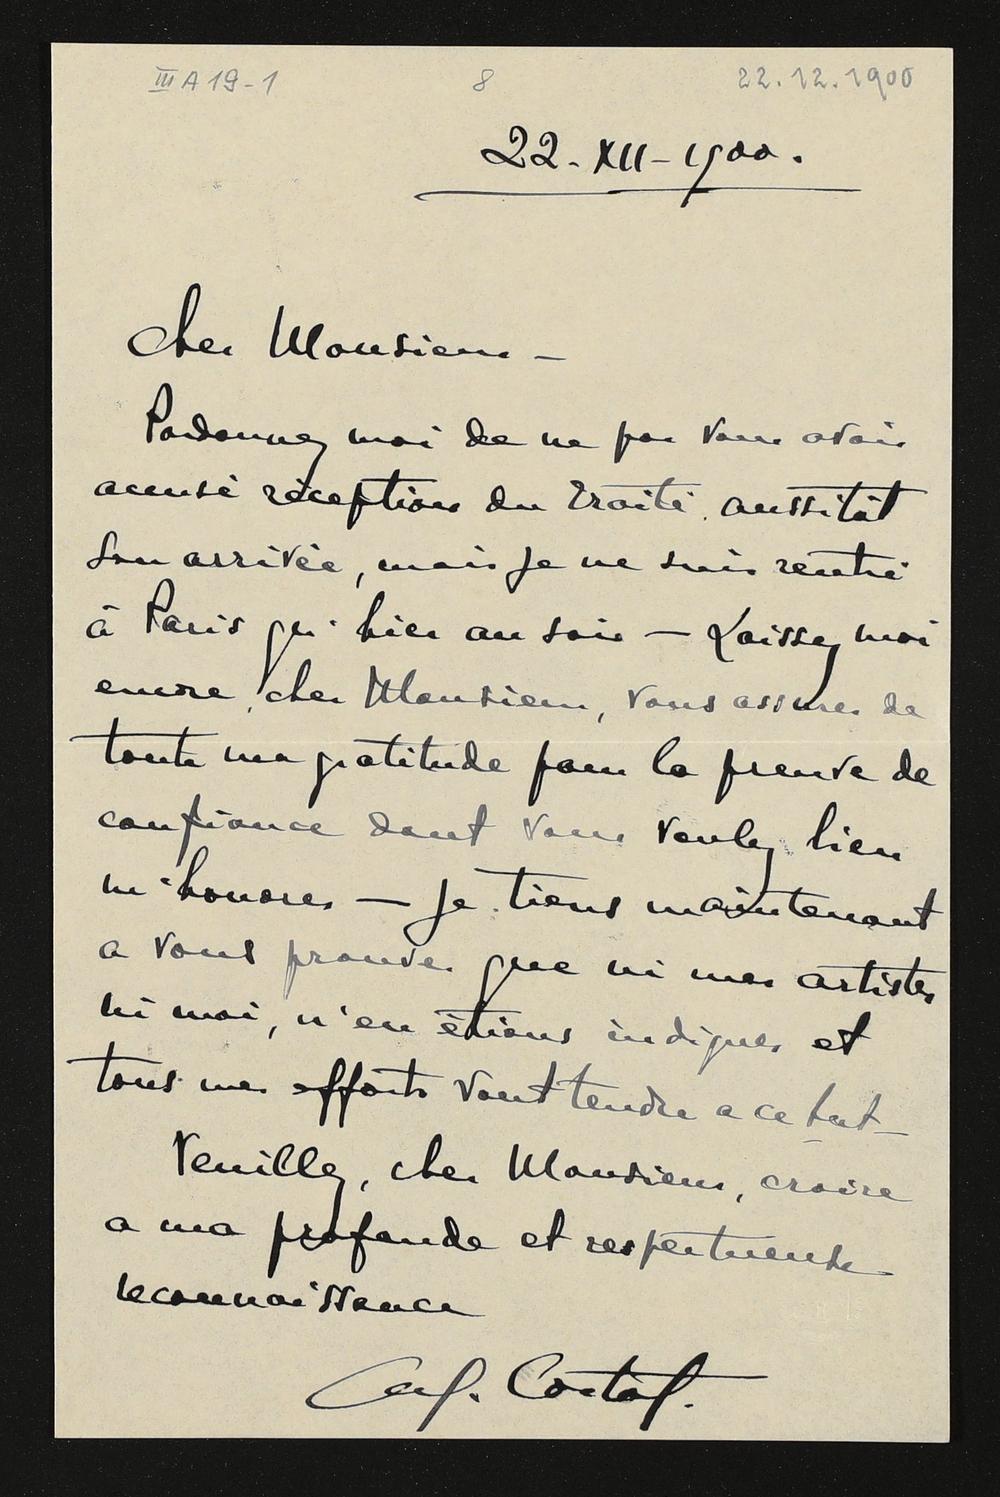 III A 19-1 8 22.12.1900
22-XII-1900.
Cher Monsieur –
Pardonnez moi de ne pas vous avoir
accusé réception du Traité aussitôt
son arrivée, mais je ne suis rentré
à Paris qu'hier au soir – Laissez moi
encore, cher Monsieur, vous assurer de
toute ma gratitude pour la preuve de
confiance dont vous voulez bien
m'honorer – Je tiens maintenant
a vous prouver que ni mes artistes
ni moi, n'en étions indignes et
tous mes efforts vont tendre a ce but –
Veuillez, cher Monsieur, croire
a ma profonde et respectueuse
reconnaissance
Alf. Cortot.